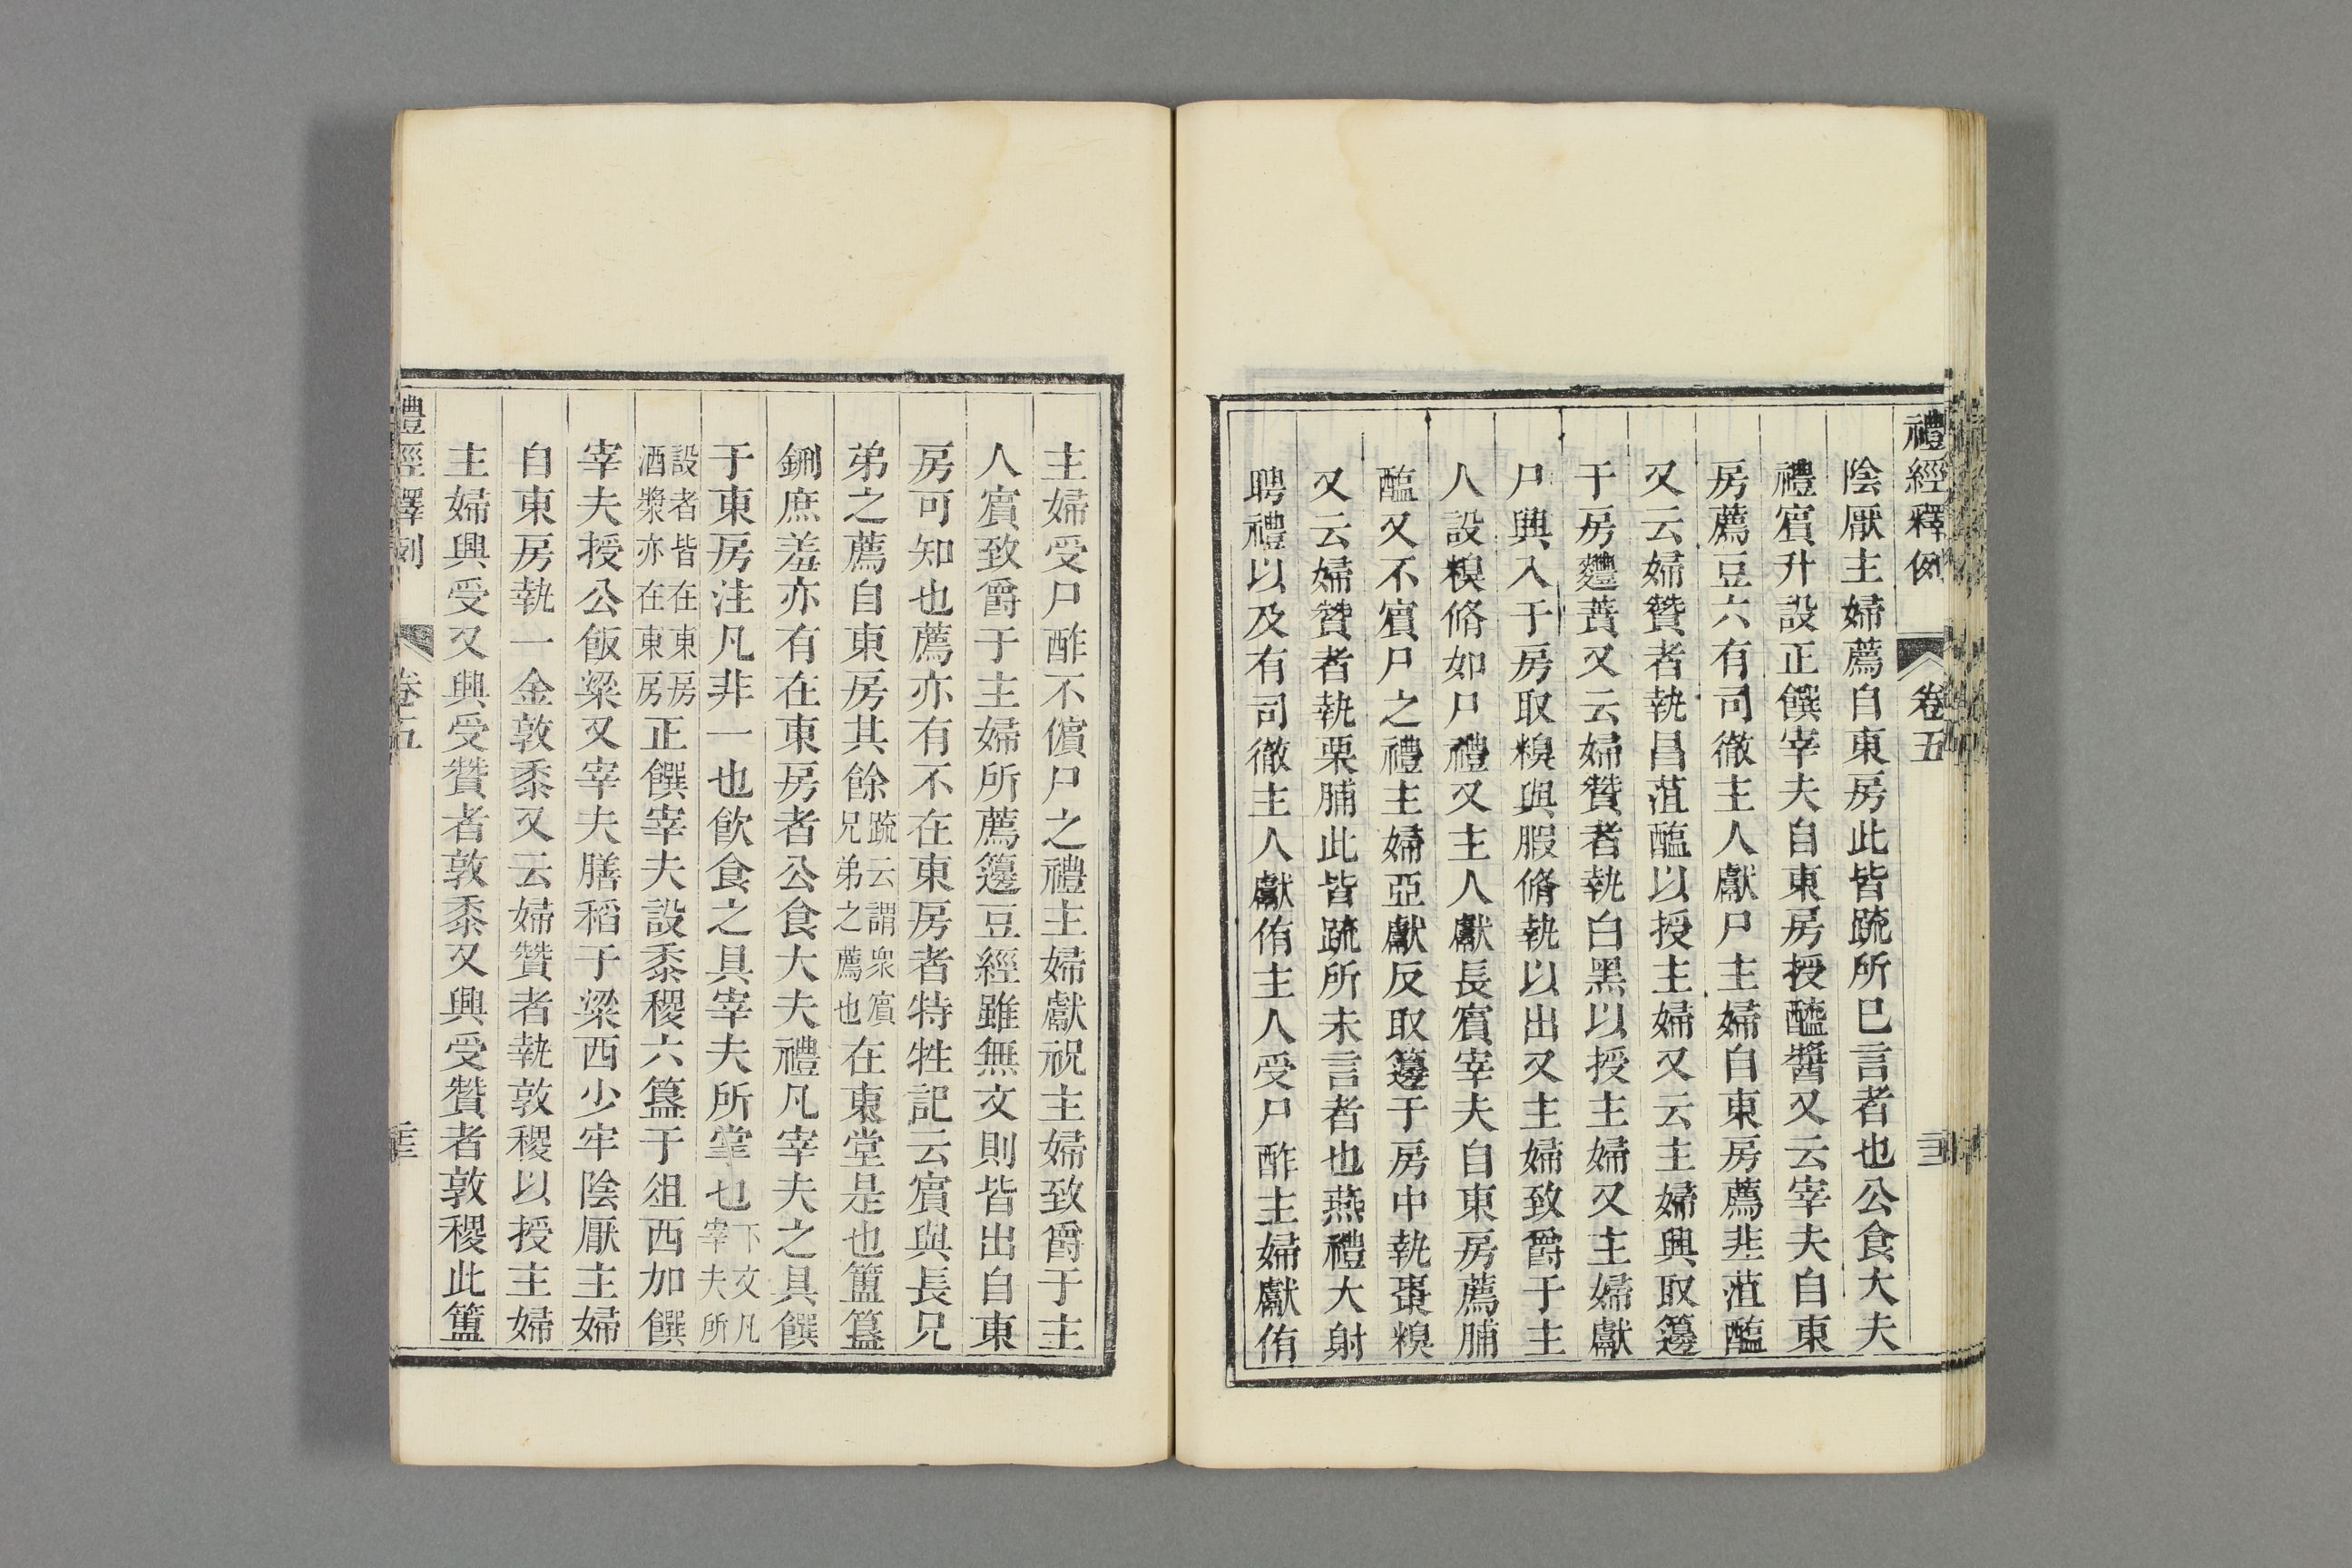 禮經釋例
卷五
陰厭主婦薦自東房此皆疏所巳言者也公食大夫
禮賓升設正饌宰夫自東房授醯醬又云宰夫自東
房薦豆六有司徹主人獻尸主婦自東房薦韭菹醢
又云婦贊者執昌菹醢以授主婦又云主婦興取籩
于房麷蕡又云婦贊者執白黑以授主婦又主婦獻
尸興入于房取糗與腶脩執以出又主婦致爵于主
人設糗脩如尸禮又主人獻長賓宰夫自東房薦脯
醢又不賓尸之禮主婦亞獻反取籩于房中執棗糗
又云婦贊者執栗脯此皆疏所未言者也燕禮大射
聘禮以及有司徹主人獻侑主人受尸酢主婦獻侑
主婦受尸酢不儐尸之禮主婦獻祝主婦致爵于主
人賓致爵于主婦所薦籩豆經雖無文則皆出自東
房可知也薦亦有不在東房者特牲記云賓與長兄
弟之薦自東房其餘疏云謂衆賓兄弟之薦也在東堂是也簠簋
鉶庶羞亦有在東房者公食大夫禮凡宰夫之具饌
于東房注凡非一也飮食之具宰夫所掌也下文凡宰夫所
設者皆在東房酒漿亦在東房正饌宰夫設黍稷六簋于俎西加饌
宰夫授公飯粱又宰夫膳稻于粱西少牢陰厭主婦
自東房執一金敦黍又云婦贊者執敦稷以授主婦
主婦興受又興受贊者敦黍又興受贊者敦稷此簠
禮經釋例
卷五